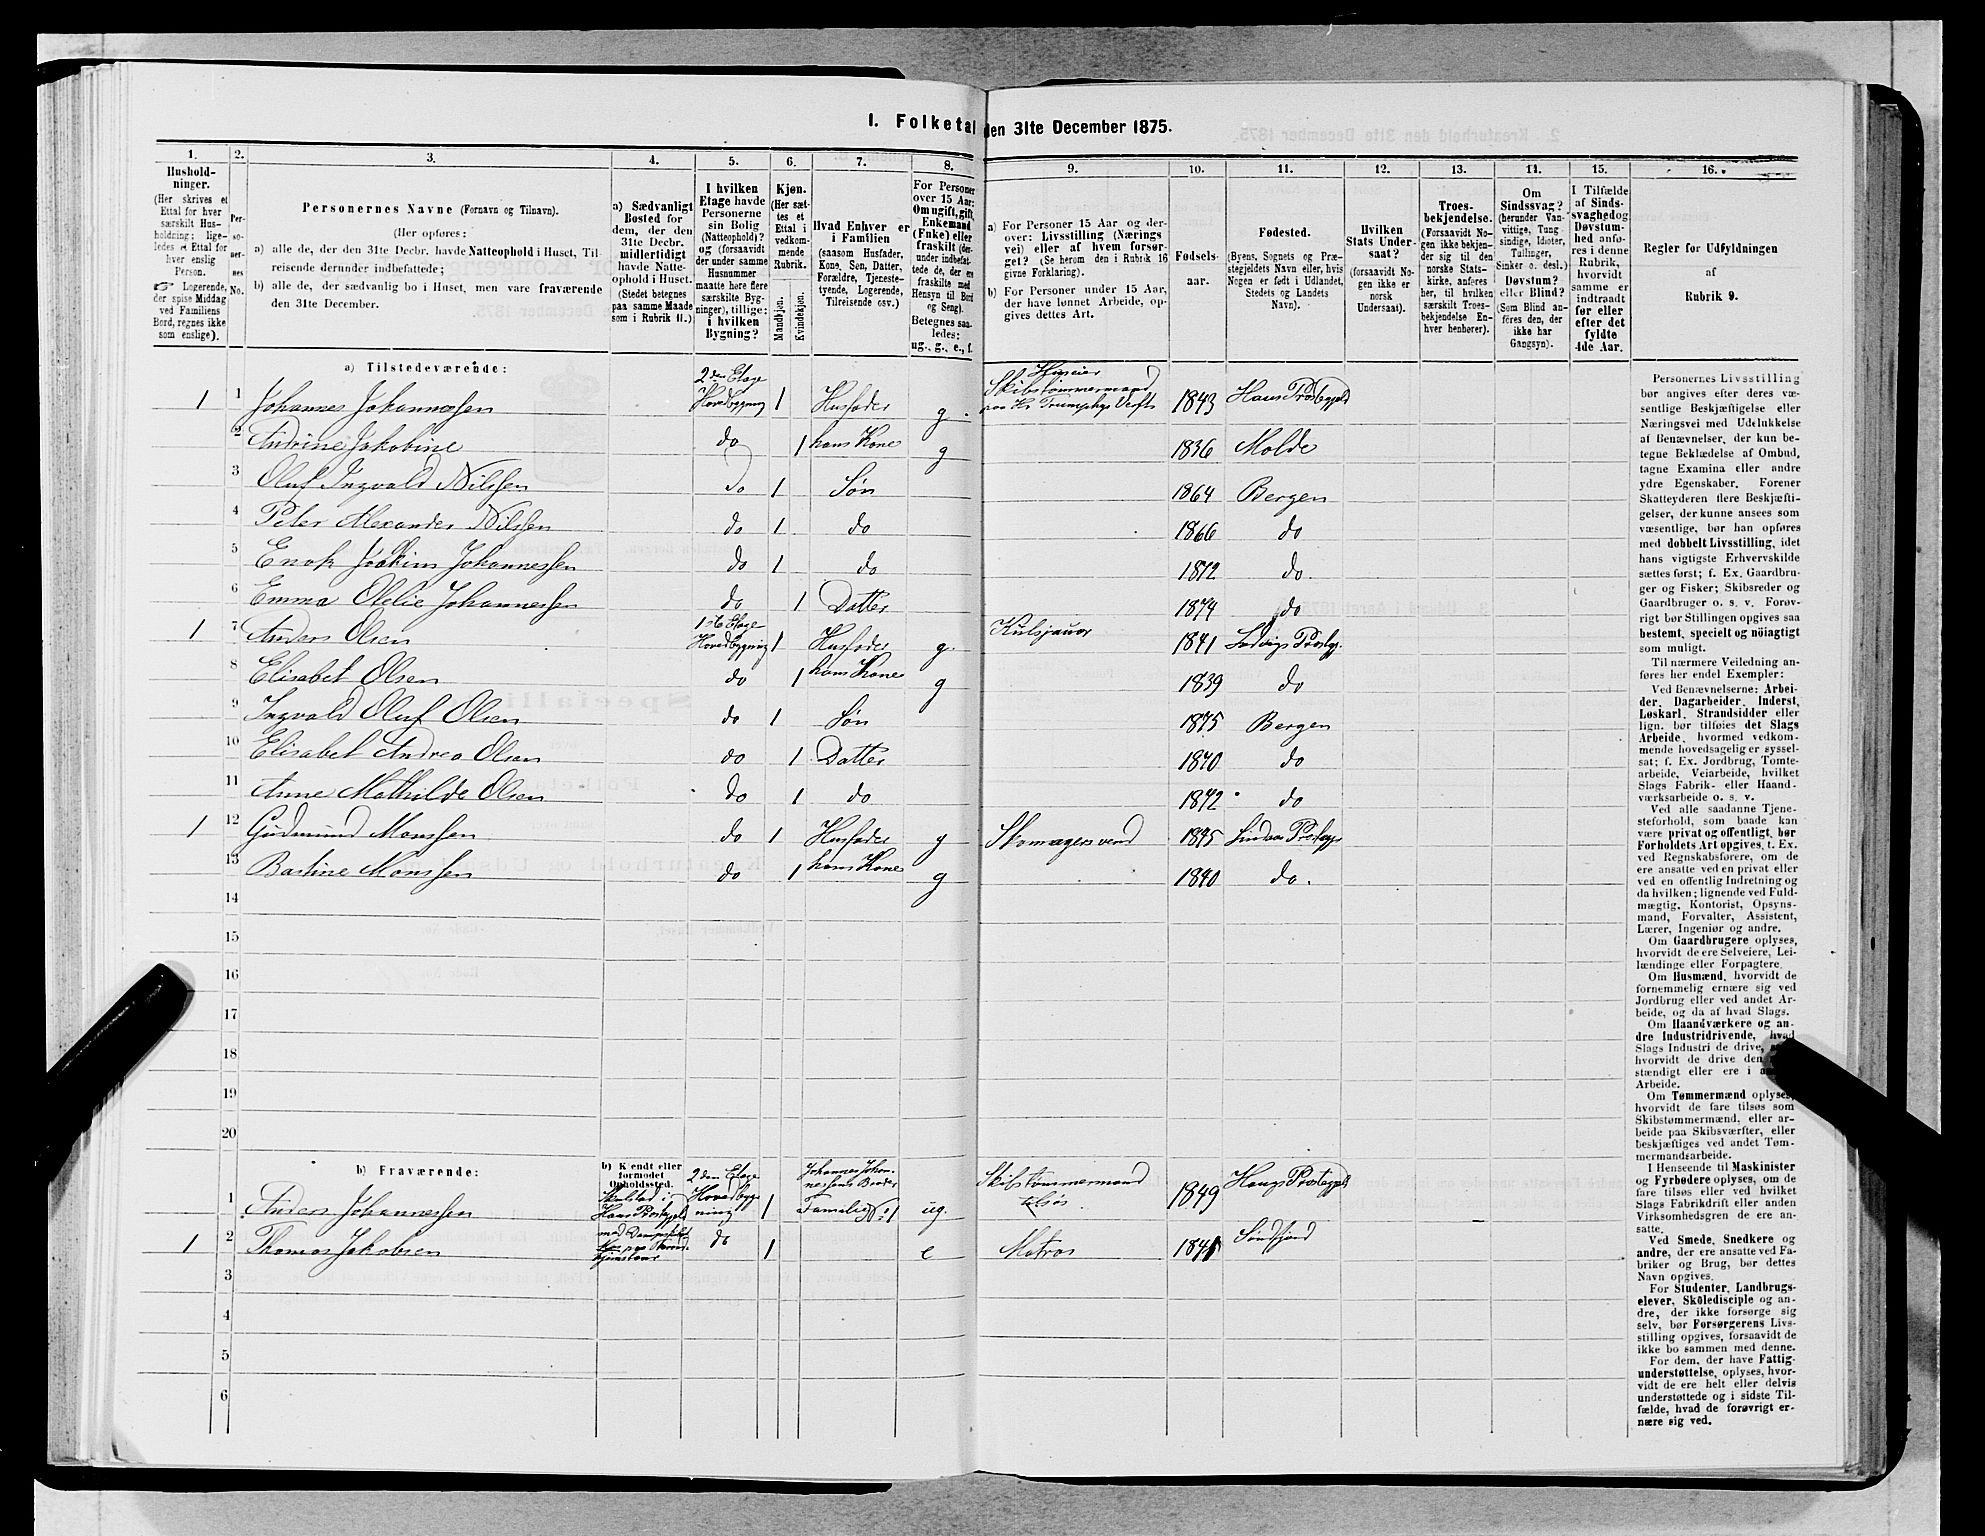 I. Folketal den 31te December 1875.
1. 2. 3. 4. 5. 6. 7. 8. 9. 10. 11. 12. 13. 14. 15. 16.
Hushold-
ninger.
(Her skrives et
Ettal for hver
særskilt Hus-
holdning; lige-
ledes et Ettal for
hver enslig
Person.
☞ Logerende,
der spise Middag
ved Familiens
Bord, regnes ikke
som enslige).
Per-
so-
ner-
nes
No.
Personernes Navne (Fornavn og Tilnavn).
(Her opføres:
a) alle de, der den 31te Decbr. havde Natteophold i Huset, Til-
reisende derunder indbefattede;
b) alle de, der sædvanlig bo i Huset, men vare fraværende
den 31te December.
a) Sædvanligt
Bosted for
dem, der den
31te Decbr.
midlertidigt
havde Natte-
ophold i Huset.
(Stedet betegnes
paa samme Maade
som i Rubrik 11.)
I hvilken
Etage havde
Personerne
sin Bolig
(Natteophold)?
og (forsaavidt
der under samme
Husnummer
maatte høre flere
særskilte Byg-
ninger), tillige:
i hvilken
Bygning?
Kjøn.
(Her sæt-
tes et
Ettal i
vedkom-
mende
Rubrik.
Mandkjøn.
Kvindekjøn.
Hvad Enhver er
i Familien
(saasom Husfader,
Kone, Søn, Datter,
Forældre, Tjeneste-
tyende, Logerende,
Tilreisende osv.)
For Personer
over 15 Aar:
Om ugift, gift,
Enkemand
(Enke) eller
fraskilt (der-
under indbefat-
tede de, der ere
fraskilte med
Hensyn til Bord
og Seng).
Betegnes saa-
ledes:
ug., g., e., f.
a) For Personer 15 Aar og der-
over: Livsstilling (Nærings
vei) eller af hvem forsør-
get? (Se herom den i Rubrik 16
givne Forklaring).
b) For Personer under 15 Aar,
der have lønnet Arbeide, op-
gives dettes Art.
Fødsels-
aar.
Fødested.
(Byens, Sognets og Præ-
stegjeldets Navn eller, hvis
Nogen er født i Udlandet,
Stedets og Landets
Navn).
Hvilken
Stats Under-
saat?
(forsaavidt No-
gen ikke er
norsk
Undersaat).
Troes-
bekjendelse.
(Forsaavidt No-
gen ikke bekjen-
der sig til den
norske Stats-
kirke, anføres
her, til hvilken
særskilt Troes-
bekjendelse En-
hver henhører).
Om
Sindssvag?
(herunder Van-
vittige, Tung-
sindige, Idioter,
Tullinger,
Sinker o. desl.)
Døvstum?
eller Blind?
(Som Blind an-
føres den, der
ikke har
Gangsyn).
I Tilfælde
af Sinds-
svaghed og
Døvstum-
hed anfø-
res i denne
Rubrik,
hvorvidt
samme er
indtraadt
før eller
efter det
fyldte
4de Aar.
Regler for Udfyldningen
af
Rubrik 9.
a) Tilstedeværende:
1 1 Johannes Johannessen 2den Etage Hovedbygning 1 Husfader g. Huseier Skibstømmermand 1843 Haus Præstegjeld
2 Andrine Jakobine do 1 hans Kone g 1836 Molde
3 Oluf Ingvald Nilssen do 1 Søn 1864 Bergen
4 Peter Alexander Nilssen do 1 do 1866 do
5 Enok Joakim Johannessen do 1 do 1872 do.
6 Emma Otelie Johannessen do 1 Datter 1874 do
1 7 Anders Olsen 1ste Etage Hovedbygning 1 Husfader g. Kulsjauer 1841 Præstgj.
8 Elisabet Olsen do 1 hans Kone g 1839 do
9 Ingvald Oluf Olsen do 1 Søn 1875 Bergen
10 Elisabet Andrea Olsen do 1 Datter 1870 do
11 Anne Mathilde Olsen do 1 do 1872 do
1 12 Gudmund Monssen do 1 Husfader g Skomagersvend Lindaas Præstegj
13 Bastine Monssen do 1 hans Kone g 1840 do.
14
15
16
17
18
19
20
b) Fraværende:
b) Kjendt eller
formodet
Opholdssted.
1 Anders Johannessen i Haus Præstegjeld 2den Etage Hovedbygning 1 Johannes Johannessens Broder Familie No 1 ug. Skibstømmermand tilsøs 1849 Haugs Præstegjeld
1 2 Thomas Jakobsen do 1 e Matros Søndfjord
3
4
5
6
Personernes Livsstilling
bør angives efter deres væ-
sentlige Beskjæftigelse eller
Næringsvei med Udelukkelse
af Benævnelser, der kun be-
tegne Beklædelse af Ombud,
tagne Examina eller andre
ydre Egenskaber. Forener
Skatteyderen flere Beskjæfti-
gelser, der kunne ansees som
væsentlige, bør han opføres
med dobbelt Livsstilling, idet
hans vigtigste Erhvervskilde
sættes først; f. Ex. Gaardbru-
ger og Fisker; Skibsreder og
Gaardbruger o. s. v. Forøv-
rigt bør Stillingen opgives saa
bestemt, specielt og nöiagtigt
som muligt.
Til nærmere Veiledning an-
føres her endel Exempler:
Ved Benævnelserne: Arbei-
der, Dagarbeider, Inderst,
Løskarl, Strandsidder eller
lign. bør tilføies det Slags
Arbeide, hvormed vedkom-
mende hovedsagelig er syssel-
sat; f. Ex. Jordbrug, Tomte-
arbeide, Veiarbeide, hvilket
Slags Fabrik- eller Haand-
værksarbeide o. s. v.
Ved alle saadanne Tjene-
steforhold, som baade kan
være privat og offentligt, bør
Forholdets Art opgives, t. Ex.
ved Regnskabsførere, om de
ere ansatte ved en privat eller
ved en offentlig Indretning og
da hvilken; lignende ved Fuld-
mægtig, Kontorist, Opsyns-
mand, Forvalter, Assistent,
Lærer, Ingeniør og andre.
Om Gaardbrugere oplyses,
hvorvidt de ere Selveiere, Lei-
lændinge eller Forpagtere.
Om Husmænd, hvorvidt de
fornemmelig ernære sig ved
Jordbrug eller ved andet Ar-
beide, og da af hvad Slags.
Om Haandværkere og an-
dre Industridrivende, hvad
Slags Industri de drive,
hvorvidt de drive den
stændigt eller ere i
Arbeide.
Om Tømmermænd oplyses,
hvorvidt de fare tilsøs som
Skibstømmermænd, eller ar-
beide paa Skibsværfter, eller
beskjæftiges ved andet Tøm-
mermandsarbeide.
I Henseende til Maskinister
og Fyrbødere oplyses, om de
fare tilsøs eller ved hvilket
Slags Fabrikdrift eller anden
Virksomhedsgren de ere an-
satte.
Ved Smede, Snedkere og
andre, der ere ansatte ved Fa-
briker og Brug, bør dettes
Navn opgives.
For Studenter, Landbrugs-
elever, Skôledisciple og an-
dre, der ikke forsørge sig
selv, bør Forsørgerens Livs-
stilling opgives, forsaavidt de
ikke bo sammen med denne.
For dem, der have Fattig-
understøttelse, oplyses, hvor-
vidt de ere helt eller delvis
understøttede og i sidste Til-
fælde, hvad de forøvrigt er-
nære sig ved.